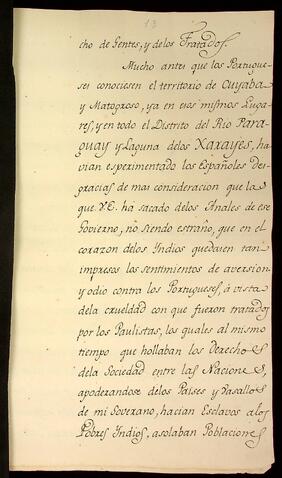 13
cho de Gentes, y delos Tratados.
Mucho antes que los Portugue-
ses conociesen el territorio de Cuyaba
y Matogroso, ya en esos mismos Luga-
res, y en todo el Distrito del Rio Para-
guay y Laguna delos Xarayes, ha-
vian esperimentado los Españoles des-
gracias de mas consideracion que las
que V.E. ha sacado delos Anales de ese
Govierno, no siendo estraño, que en el
corazon delos Indios quedasen tan
impresos los sentimientos de aversion
y odio contra los Portugueses, á vista
dela crueldad con que fueron tratados
por los Paulistas, los quales al mismo
tiempo que hollaban los Derechos
dela Sociedad entre las Naciones,
apoderandose delos Paises y Vasallos
de mi Soverano, hacian Esclavos alos
Pobres Indios, asolaban Poblaciones